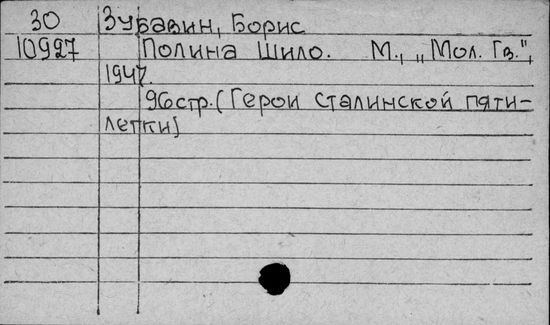 30 Зубавин, Борис
10927 Полина Шило. М., „Мол. Гв.",
1947.
96стр. (Герои сталинской пяти-
летки)